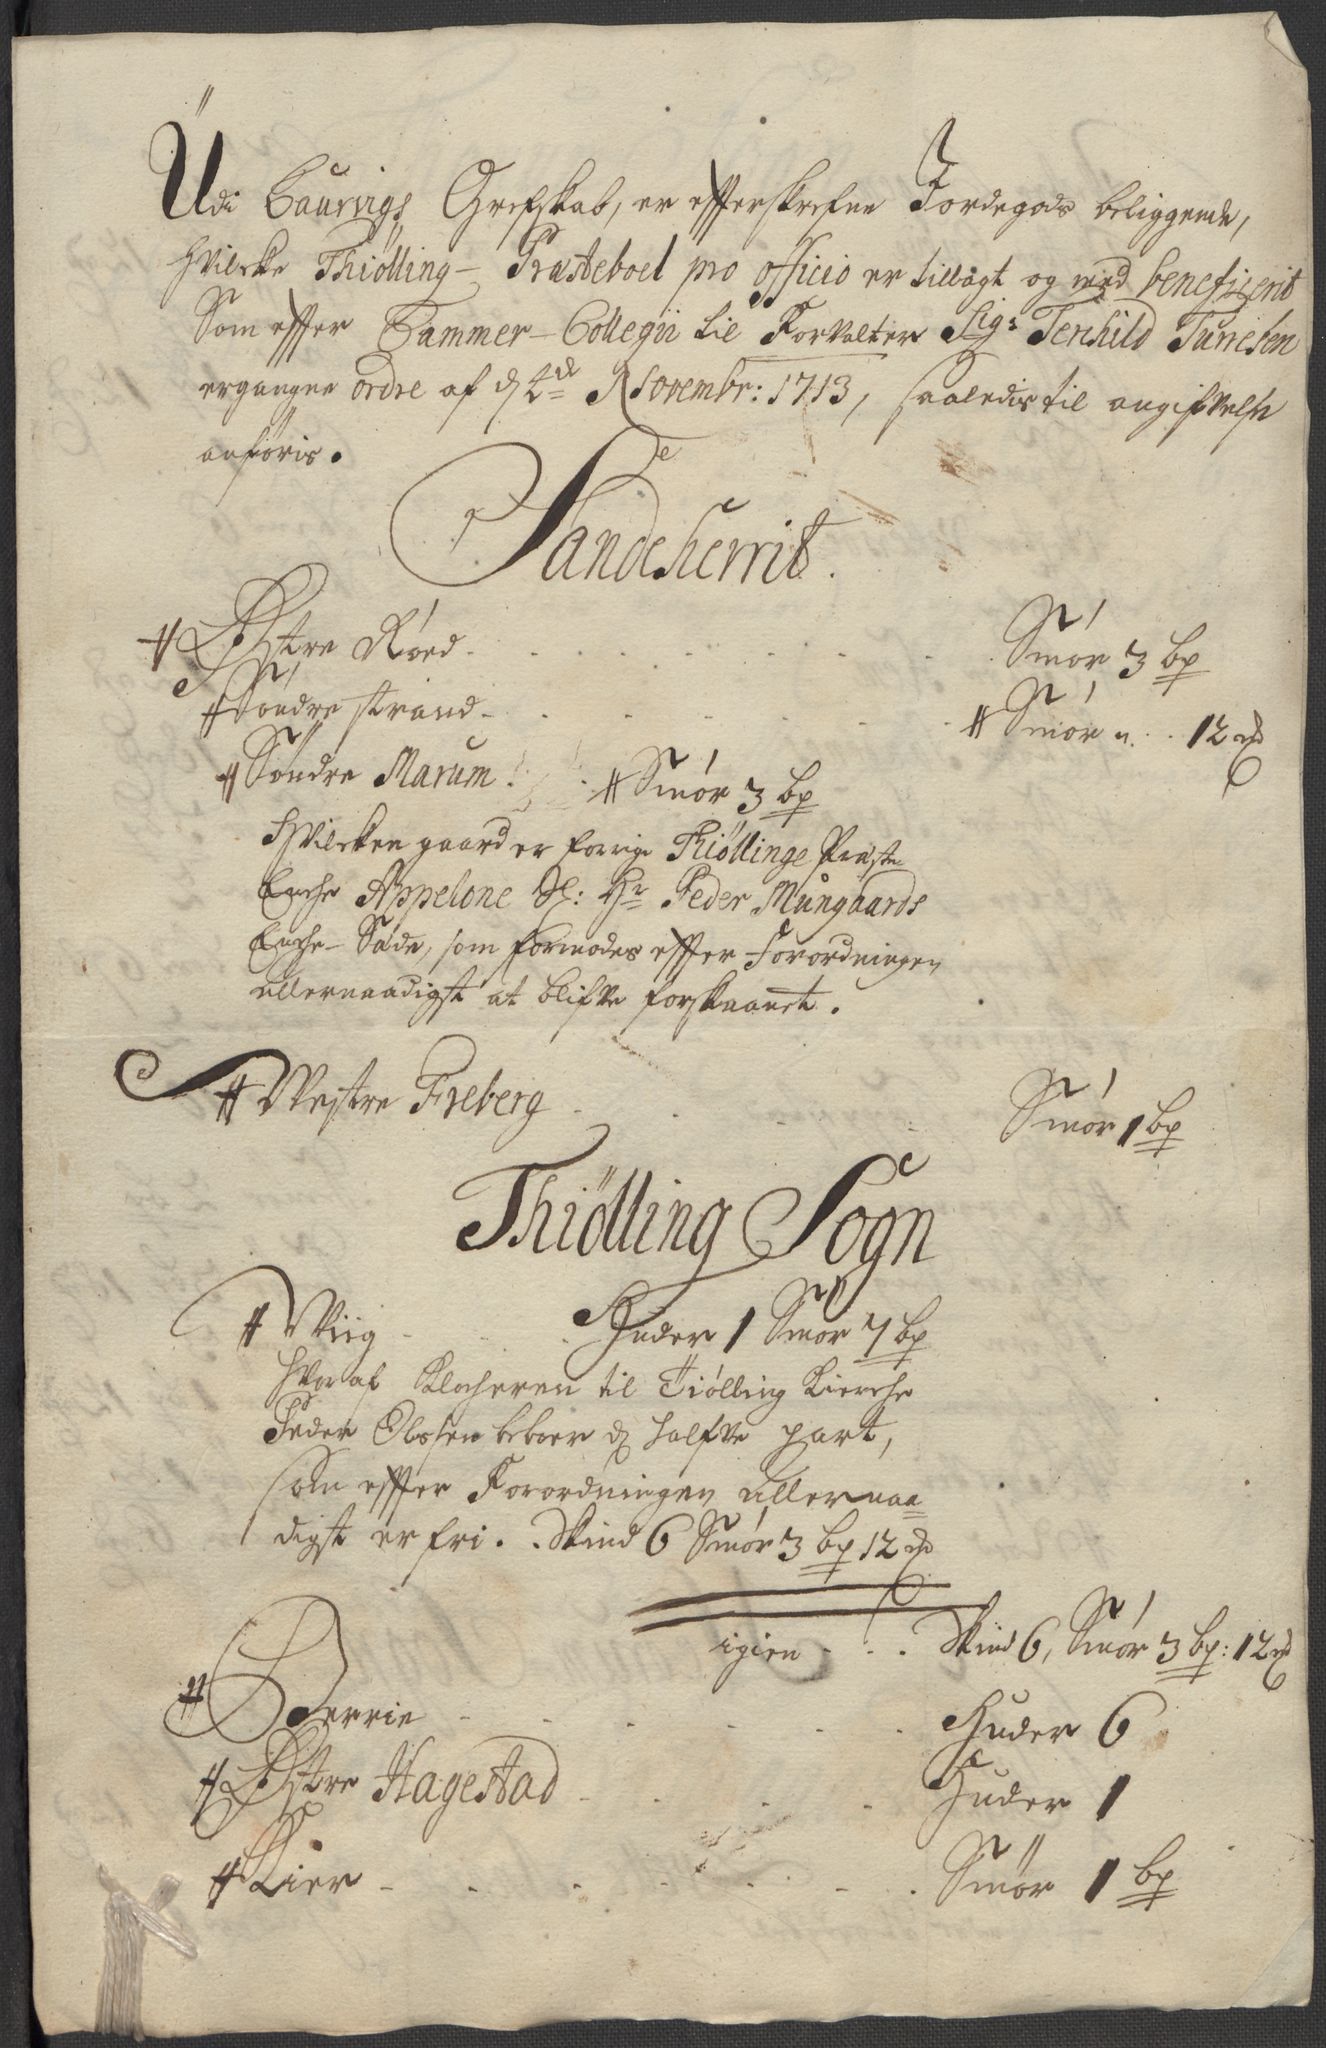 Udi Laurvigs Grefskab, er effterskrefne Jordegods beliggende,
hvilcke Thiølling - Præsteboel pro officio er tillagt og med benefizerit
Som effter Cammer - Collegii til Forvalter Sigr Terchild Turesen
ergangne ordre af d 4de Novembr: 1713, saaledis til angifvelse
anføris.
Sandeherrit.
# Østre Røed - Smør 3 bp
# Søndre strand - # Smør „ 12 md
# Søndre Marum. # Smør 3 bp
Hvilcken gaard er forrige Thiøllinge Præste
Enche Appelone Sl: Hr Peder Mungaards
Enche - Sæde, som formodes effter Forordningen
allernaadigst at blifve forskaanet.
# Westre Freberg - Smør 1 bp
Thiølling Sogn
# Wiig - Huder 1 Smør 7 bp
hvor af Klocheren til Tiølling Kierche
Peder Olssen beboer d halfve part,
som effter Forordningen allernaa=
digst er fri. . Skind 6 Smør 3 bp 12 md
igien - . . Skind 6, Smør 3 bp: 12 md
# Berrie - Huder 6
# Østre Hagestad - Huder 1
# Kier - Smør 1 bp